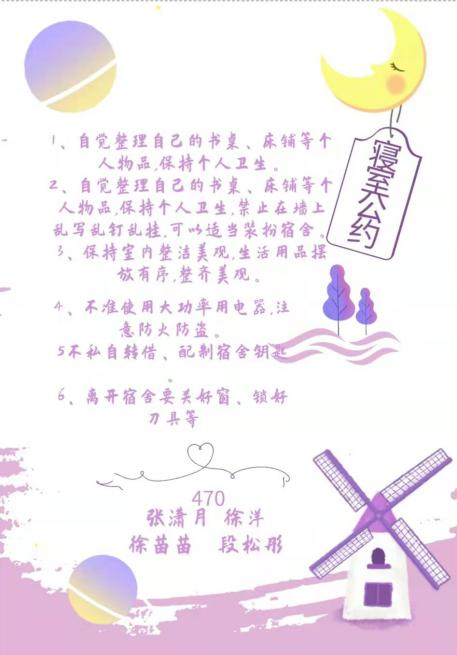 寝室公约
1、自觉整理自己的书桌、床铺等个
人物品,保持个人卫生。
2、自觉整理自己的书桌、床铺等个
人物品,保持个人卫生,禁止在墙上
乱写乱钉乱挂,可以适当装扮宿舍。
3、保持室内整洁美观,生活用品摆
放有序,整齐美观。
4、不准使用大功率用电器,注
意防火防盗。
5不私自转借、配制宿舍钥匙
6、离开宿舍要关好窗、锁好
刀具等
470
张潇月 徐洋
徐苗苗 段松彤